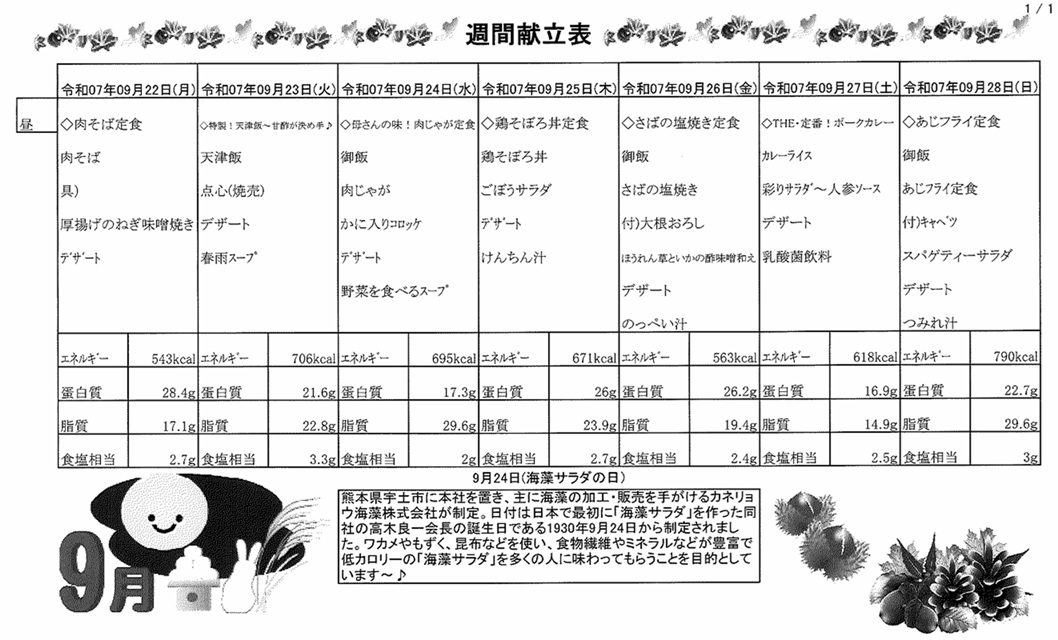 1 / 1
週間献立表
令和07年09月22日(月) 令和07年09月23日(火) 令和07年09月24日(水) 令和07年09月25日(木) 令和07年09月26日(金) 令和07年09月27日(土) 令和07年09月28日(日)
昼 ◇肉そば定食 ◇特製！天津飯～甘酢が決め手♪ ◇母さんの味！肉じゃが定食 ◇鶏そぼろ丼定食 ◇さばの塩焼き定食 ◇THE・定番！ポークカレー ◇あじフライ定食
肉そば 天津飯 御飯 鶏そぼろ丼 御飯 カレーライス 御飯
具） 点心(焼売) 肉じゃが ごぼうサラダ さばの塩焼き 彩りサラダ～人参ソース あじフライ定食
厚揚げのねぎ味噌焼き デザート かに入りコロッケ デザート 付)大根おろし デザート 付)キャベツ
デザート 春雨スープ デザート けんちん汁 ほうれん草といかの酢味噌和え 乳酸菌飲料 スパゲティーサラダ
野菜を食べるスープ デザート デザート
のっぺい汁 つみれ汁
エネルギー 543kcal エネルギー 706kcal エネルギー 695kcal エネルギー 671kcal エネルギー 563kcal エネルギー 618kcal エネルギー 790kcal
蛋白質 28.4g 蛋白質 21.6g 蛋白質 17.3g 蛋白質 26g 蛋白質 26.2g 蛋白質 16.9g 蛋白質 22.7g
脂質 17.1g 脂質 22.8g 脂質 29.6g 脂質 23.9g 脂質 19.4g 脂質 14.9g 脂質 29.6g
食塩相当 2.7g 食塩相当 3.3g 食塩相当 2g 食塩相当 2.7g 食塩相当 2.4g 食塩相当 2.5g 食塩相当 3g
9月24日(海藻サラダの日)
熊本県宇土市に本社を置き、主に海藻の加工・販売を手がけるカネリョ
ウ海藻株式会社が制定。日付は日本で最初に「海藻サラダ」を作った同
社の高木良一会長の誕生日である1930年9月24日から制定されまし
た。ワカメやもずく、昆布などを使い、食物繊維やミネラルなどが豊富で
低カロリーの「海藻サラダ」を多くの人に味わってもらうことを目的として
います～♪
9月